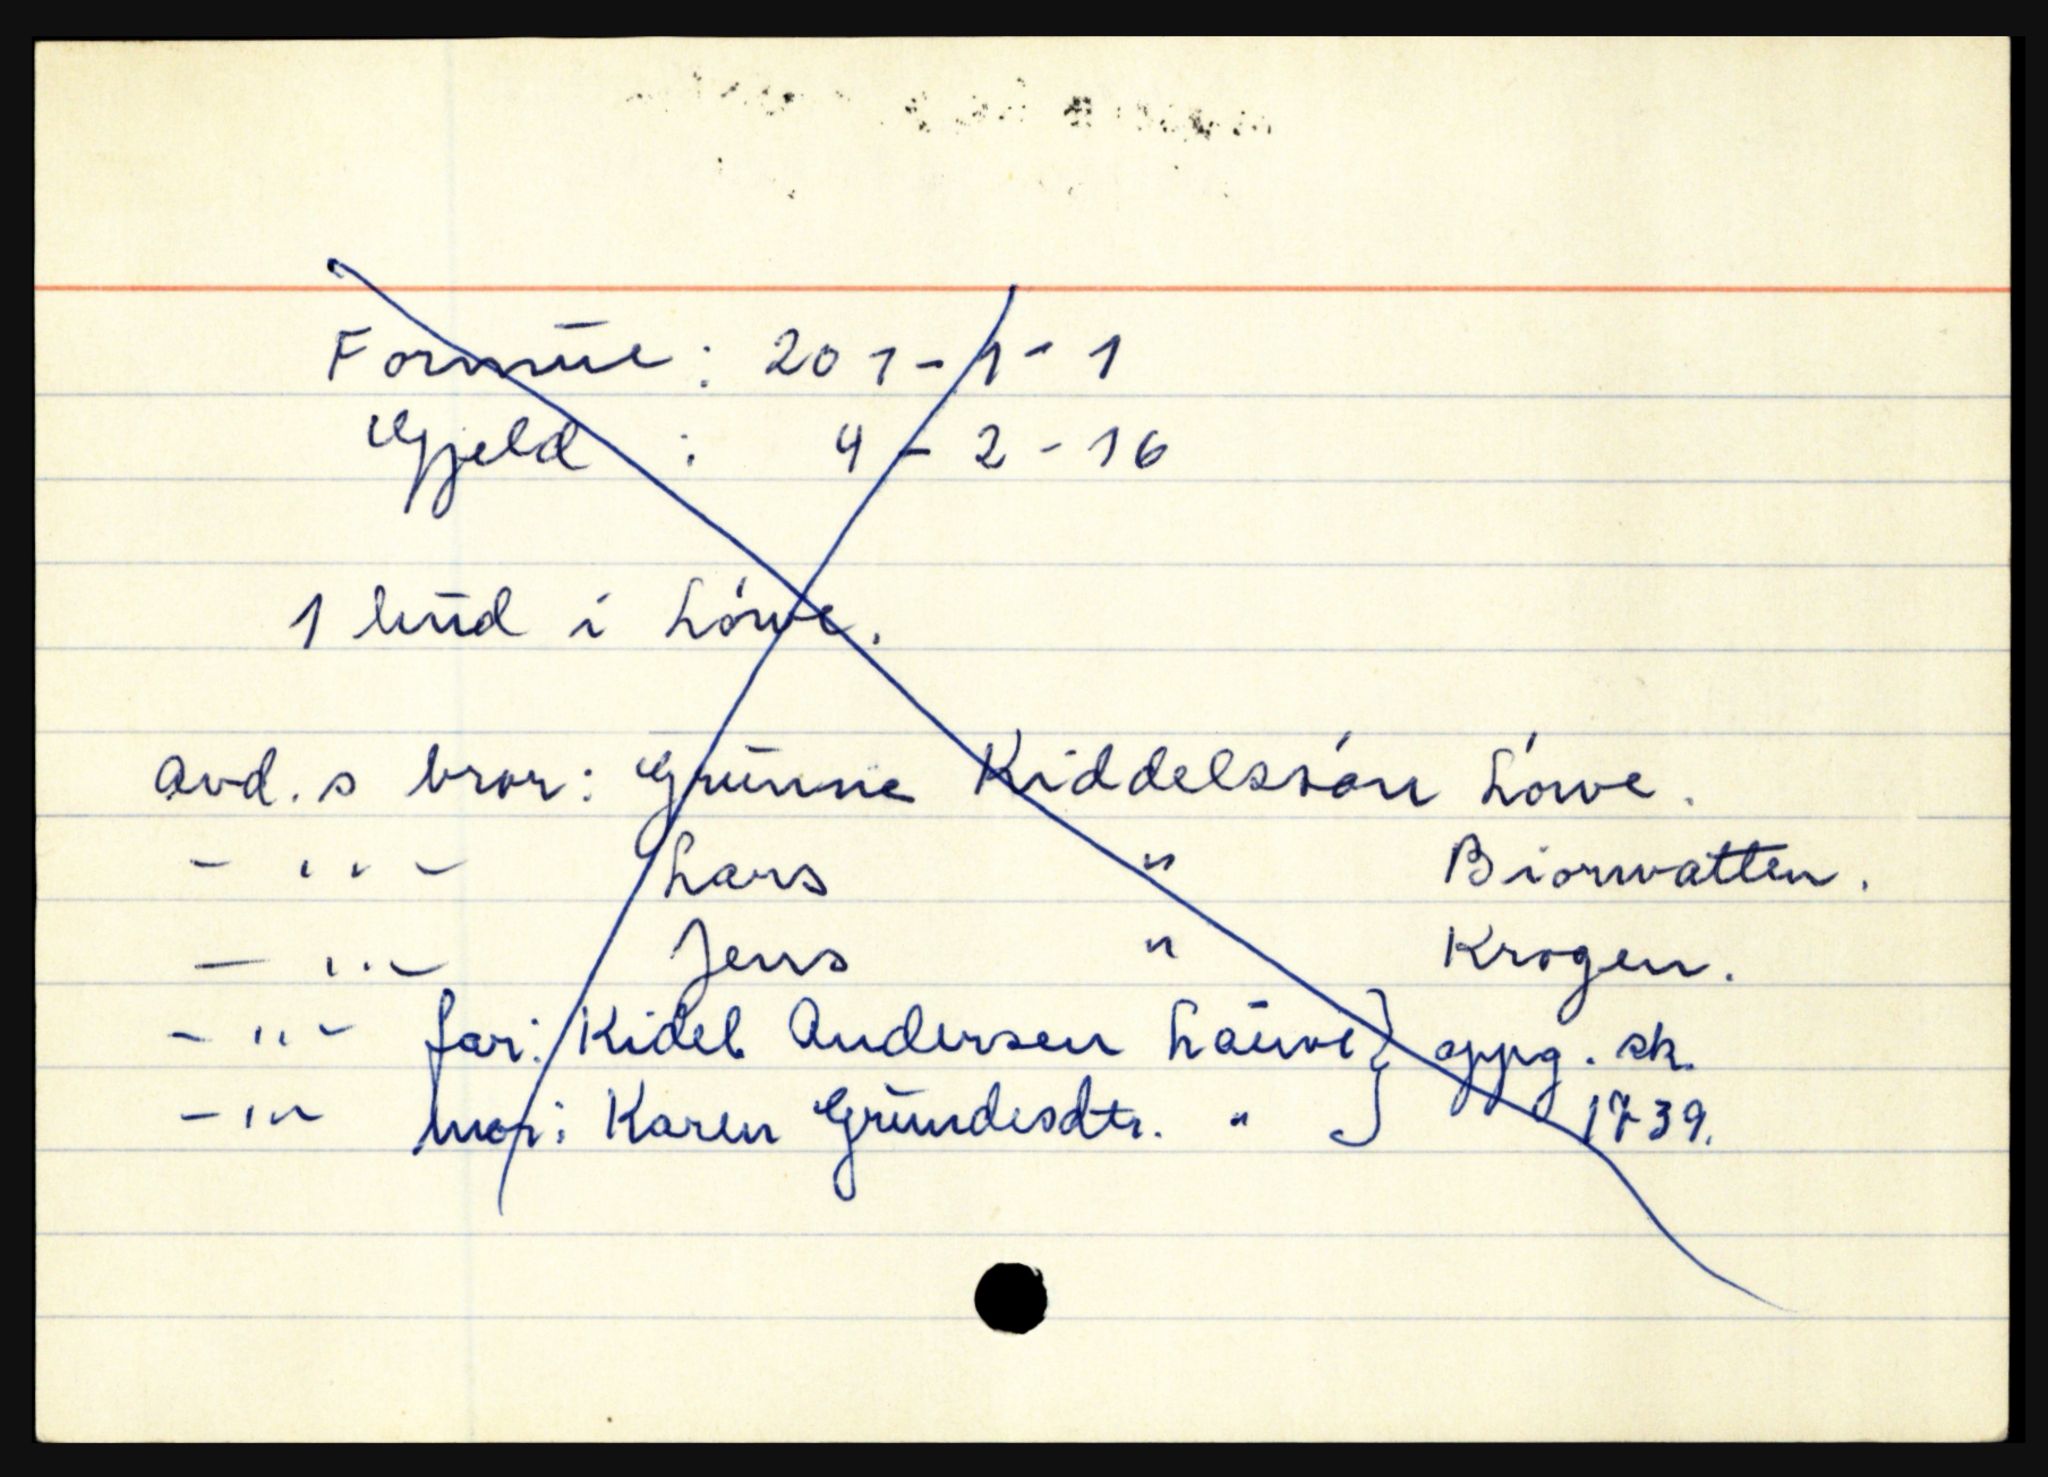 Formūe : 201-1-1
Gjeld : 4-2-16
1 hūd i Lówe.
avd.s bror: Grūnne Kiddelssón Lówe.
- " - Lars " Biorvatten.
- " - Jens " Krogen.
- " - far: Kidel Andersen Læūve } oppg. sk.
- " - mor: Karen Grūndesdtr. " } 1739.